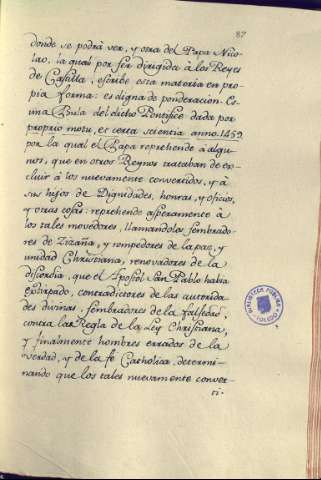 87
donde se podrà ver, y otra del Papa Nico-
lao, la qual por ser dirigida à los Reyes
de Castilla, escribe esta materia en pro-
pia forma: es digna de ponderacion Es-
una Bula del dicho Pontifice dada por
proprio motu, es certa scientia anno 1459
por la qual el Papa reprehende à algu-
nos, que en otros Reynos trataban de ex-
cluir à los nuevamente convertidos, y à
sus hijos de Dignidades, honras, y oficios,
y otras cosas: reprehende asperamente à
los tales movedores, llamandolos sembrado-
res de Zizaña, y rompedores de la paz, y
unidad Christiana, renovadores de la
discordia, que el Apostol San Pablo habia
extirpado, contradictores de las autorida-
des divinas, sembradores de la falsedad,
contra la Regla de la Ley Christiana,
y finalmente hombres errados de la
verdad, y de la fe Catholica, determi-
nando que los tales nuevamente conver-
ti-
BIBLIOTECA PUBLICA
TOLEDO